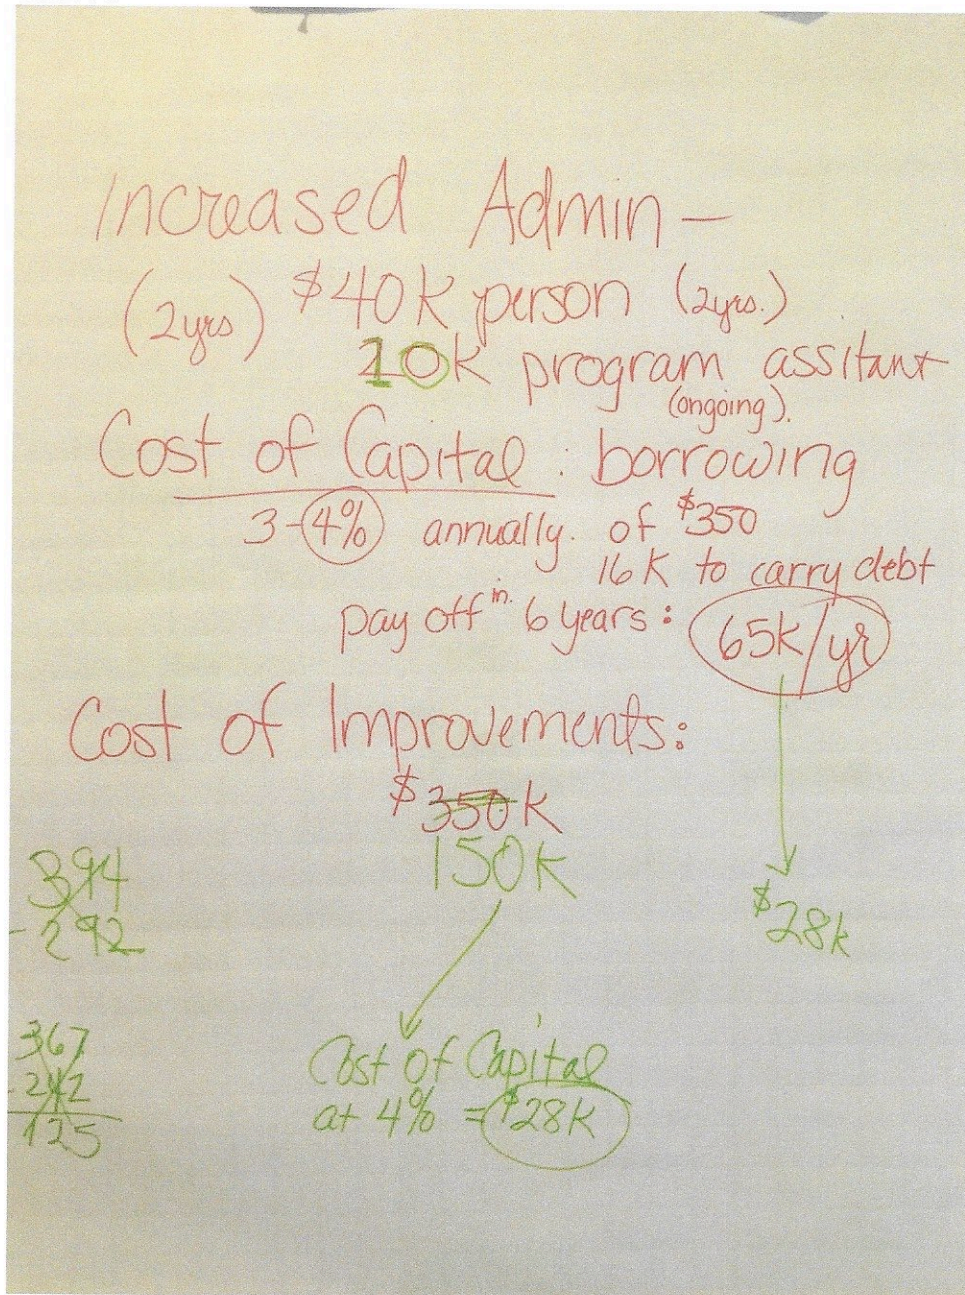 Increased Admin -
(2yrs) $40K person (2yrs.)
10K program assitant
(ongoing).
Cost of Capital : borrowing
3-4% annually. of $350
16K to carry debt
pay off in. 6 years: 65K/yr
Cost of Improvements:
$350K
150K
394
-292
$28K
367
-242
125
Cost of Capital
at 4% = $28K